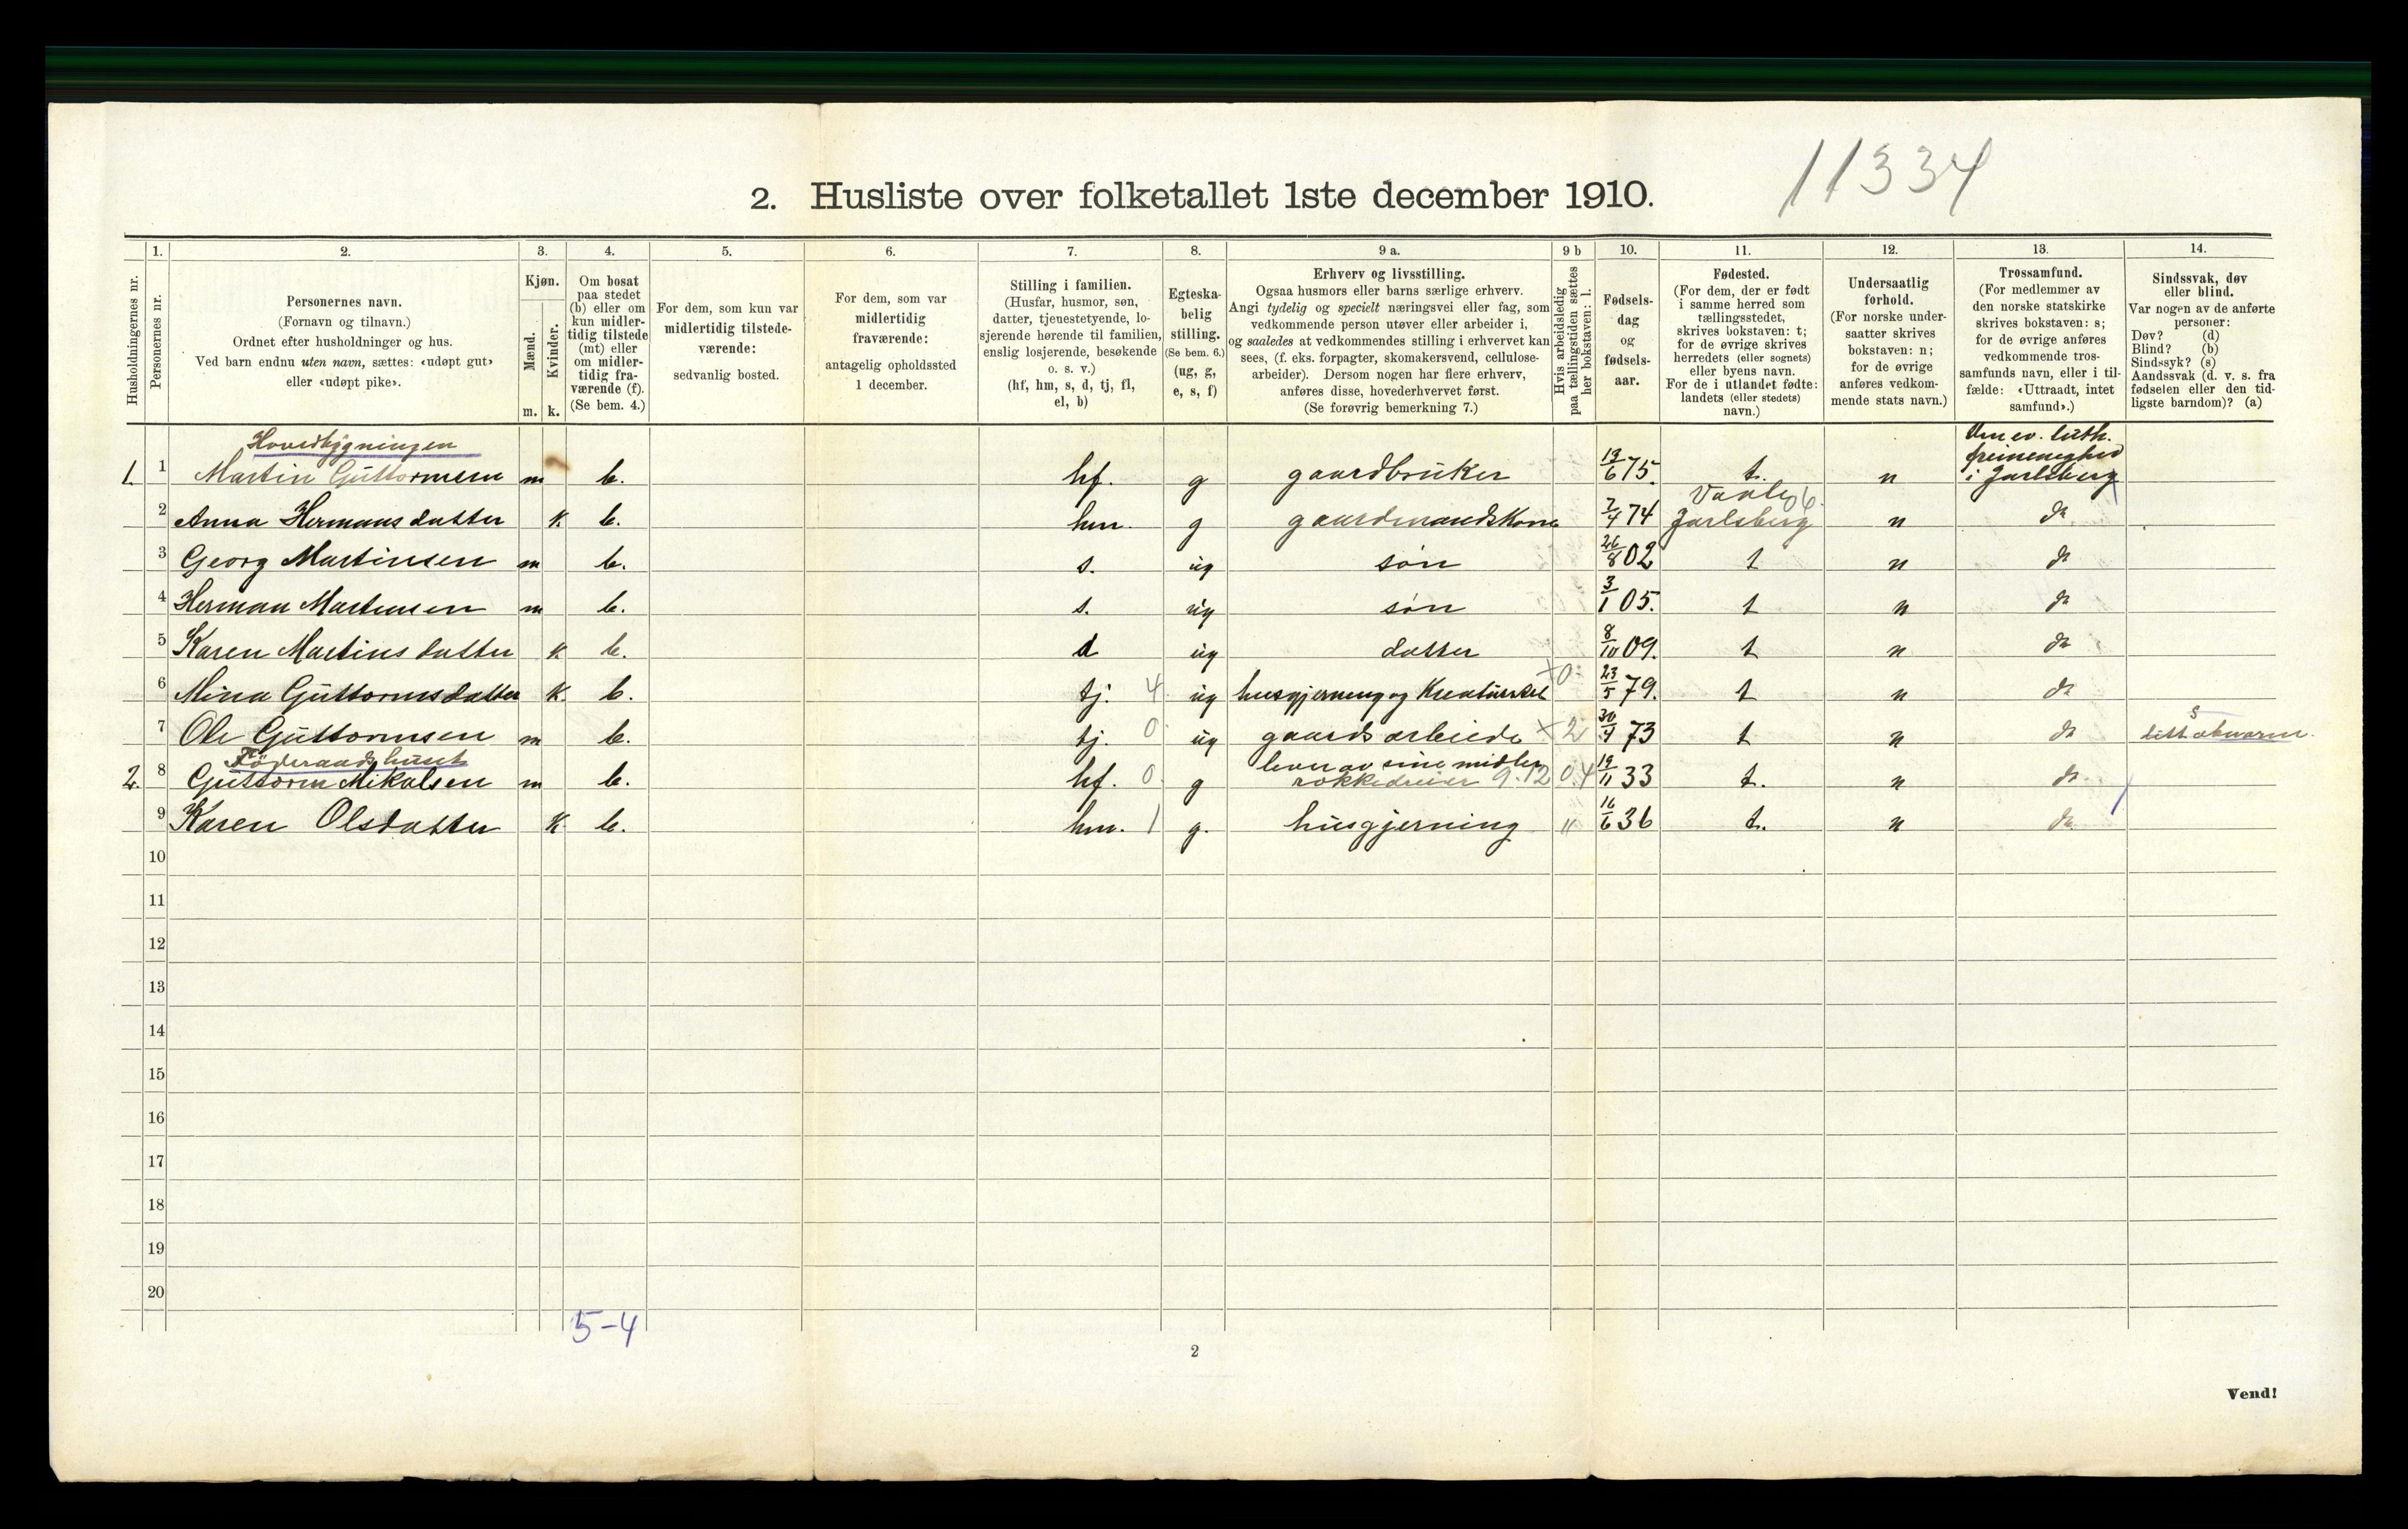 11334
2. Husliste over folketallet 1ste december 1910.
Husholdningernes nr.
1.
Personernes nr.
2.
Personernes navn.
(Fornavn og tilnavn.)
Ordnet efter husholdninger og hus.
Ved barn endnu uten navn, sættes: «udøpt gut»
eller «udøpt pike».
3.
Kjøn.
Mænd.
Kvinder.
m. k.
4.
Om bosat
paa stedet
(b) eller om
kun midler-
tidig tilstede
(mt) eller
om midler-
tidig fra-
værende (f).
(Se bem. 4.)
5.
For dem, som kun var
midlertidig tilstede-
værende:
sedvanlig bosted.
6.
For dem, som var
midlertidig
fraværende:
antagelig opholdssted
1 december.
7.
Stilling i familien.
(Husfar, husmor, søn,
datter, tjenestetyende, lo-
sjerende hørende til familien,
enslig losjerende, besøkende
o. s. v.)
(hf, hm, s, d, tj, fl,
el, b)
8.
Egteska-
belig
stilling.
(Se bem. 6.)
(ug, g,
e, s, f)
9 a.
Erhverv og livsstilling.
Ogsaa husmors eller barns særlige erhverv.
Angi tydelig og specielt næringsvei eller fag, som
vedkommende person utøver eller arbeider i,
og saaledes at vedkommendes stilling i erhvervet kan
sees, (f. eks. forpagter, skomakersvend, cellulose-
arbeider). Dersom nogen har flere erhverv,
anføres disse, hovederhvervet først.
(Se forøvrig bemerkning 7.)
9 b
Hvis arbeidsledig
paa tællingstiden sættes
her bokstaven: l.
10.
Fødsels-
dag
og
fødsels-
aar.
11.
Fødested.
(For dem, der er født
i samme herred som
tællingsstedet,
skrives bokstaven: t;
for de øvrige skrives
herredets (eller sognets)
eller byens navn.
For de i utlandet fødte:
landets (eller stedets)
navn.)
12.
Undersaatlig
forhold.
(For norske under-
saatter skrives
bokstaven: n;
for de øvrige
anføres vedkom-
mende stats navn.)
13.
Trossamfund.
(For medlemmer av
den norske statskirke
skrives bokstaven: s;
for de øvrige anføres
vedkommende tros-
samfunds navn, eller i til-
fælde: «Uttraadt, intet
samfund».)
14.
Sindssvak, døv
eller blind.
Var nogen av de anførte
personer:
Døv? (d)
Blind? (b)
Sindssyk? (s)
Aandssvak (d. v. s. fra
fødselen eller den tid-
ligste barndom)? (a)
Hovedbygningen
1. 1 Martin Guttormsen m b. hf. g gaardbruker 19/6 75. t. n Den ev. luth. frimenighed i Jarlsberg
2 Anna Hermansdatter k b. hm. g gaardmandskone 2/4 74 Vaale Jarlsberg n do
3 Georg Martinsen m b. s. ug søn 26/8 02 t n do
4 Herman Martinsen m b. s. ug søn 3/1 05. t n do
5 Karen Martinsdatter k b. d ug datter 8/10 09. t n do
6 Mina Guttormsdatter k. b. tj. 4 ug husgjerning og Kreaturstel +0 23/5 79. t n do
7 Ole Guttormsen m b. tj. 0 ug gaardsarbeide +2 73 t n do s
Föderaadshuset
2. 8 Guttorm Mikalsen m b. hf. 0 g lever av sine midler rokkedreier 9.12 0.4 19/11 33 t. n do
9 Karen Olsdatter k. b. hm. 1 g. husgjerning " 16/6 36 t. n do
10
11
12
13
14
15
16
17
18
19
20
5-4
2
Vend!